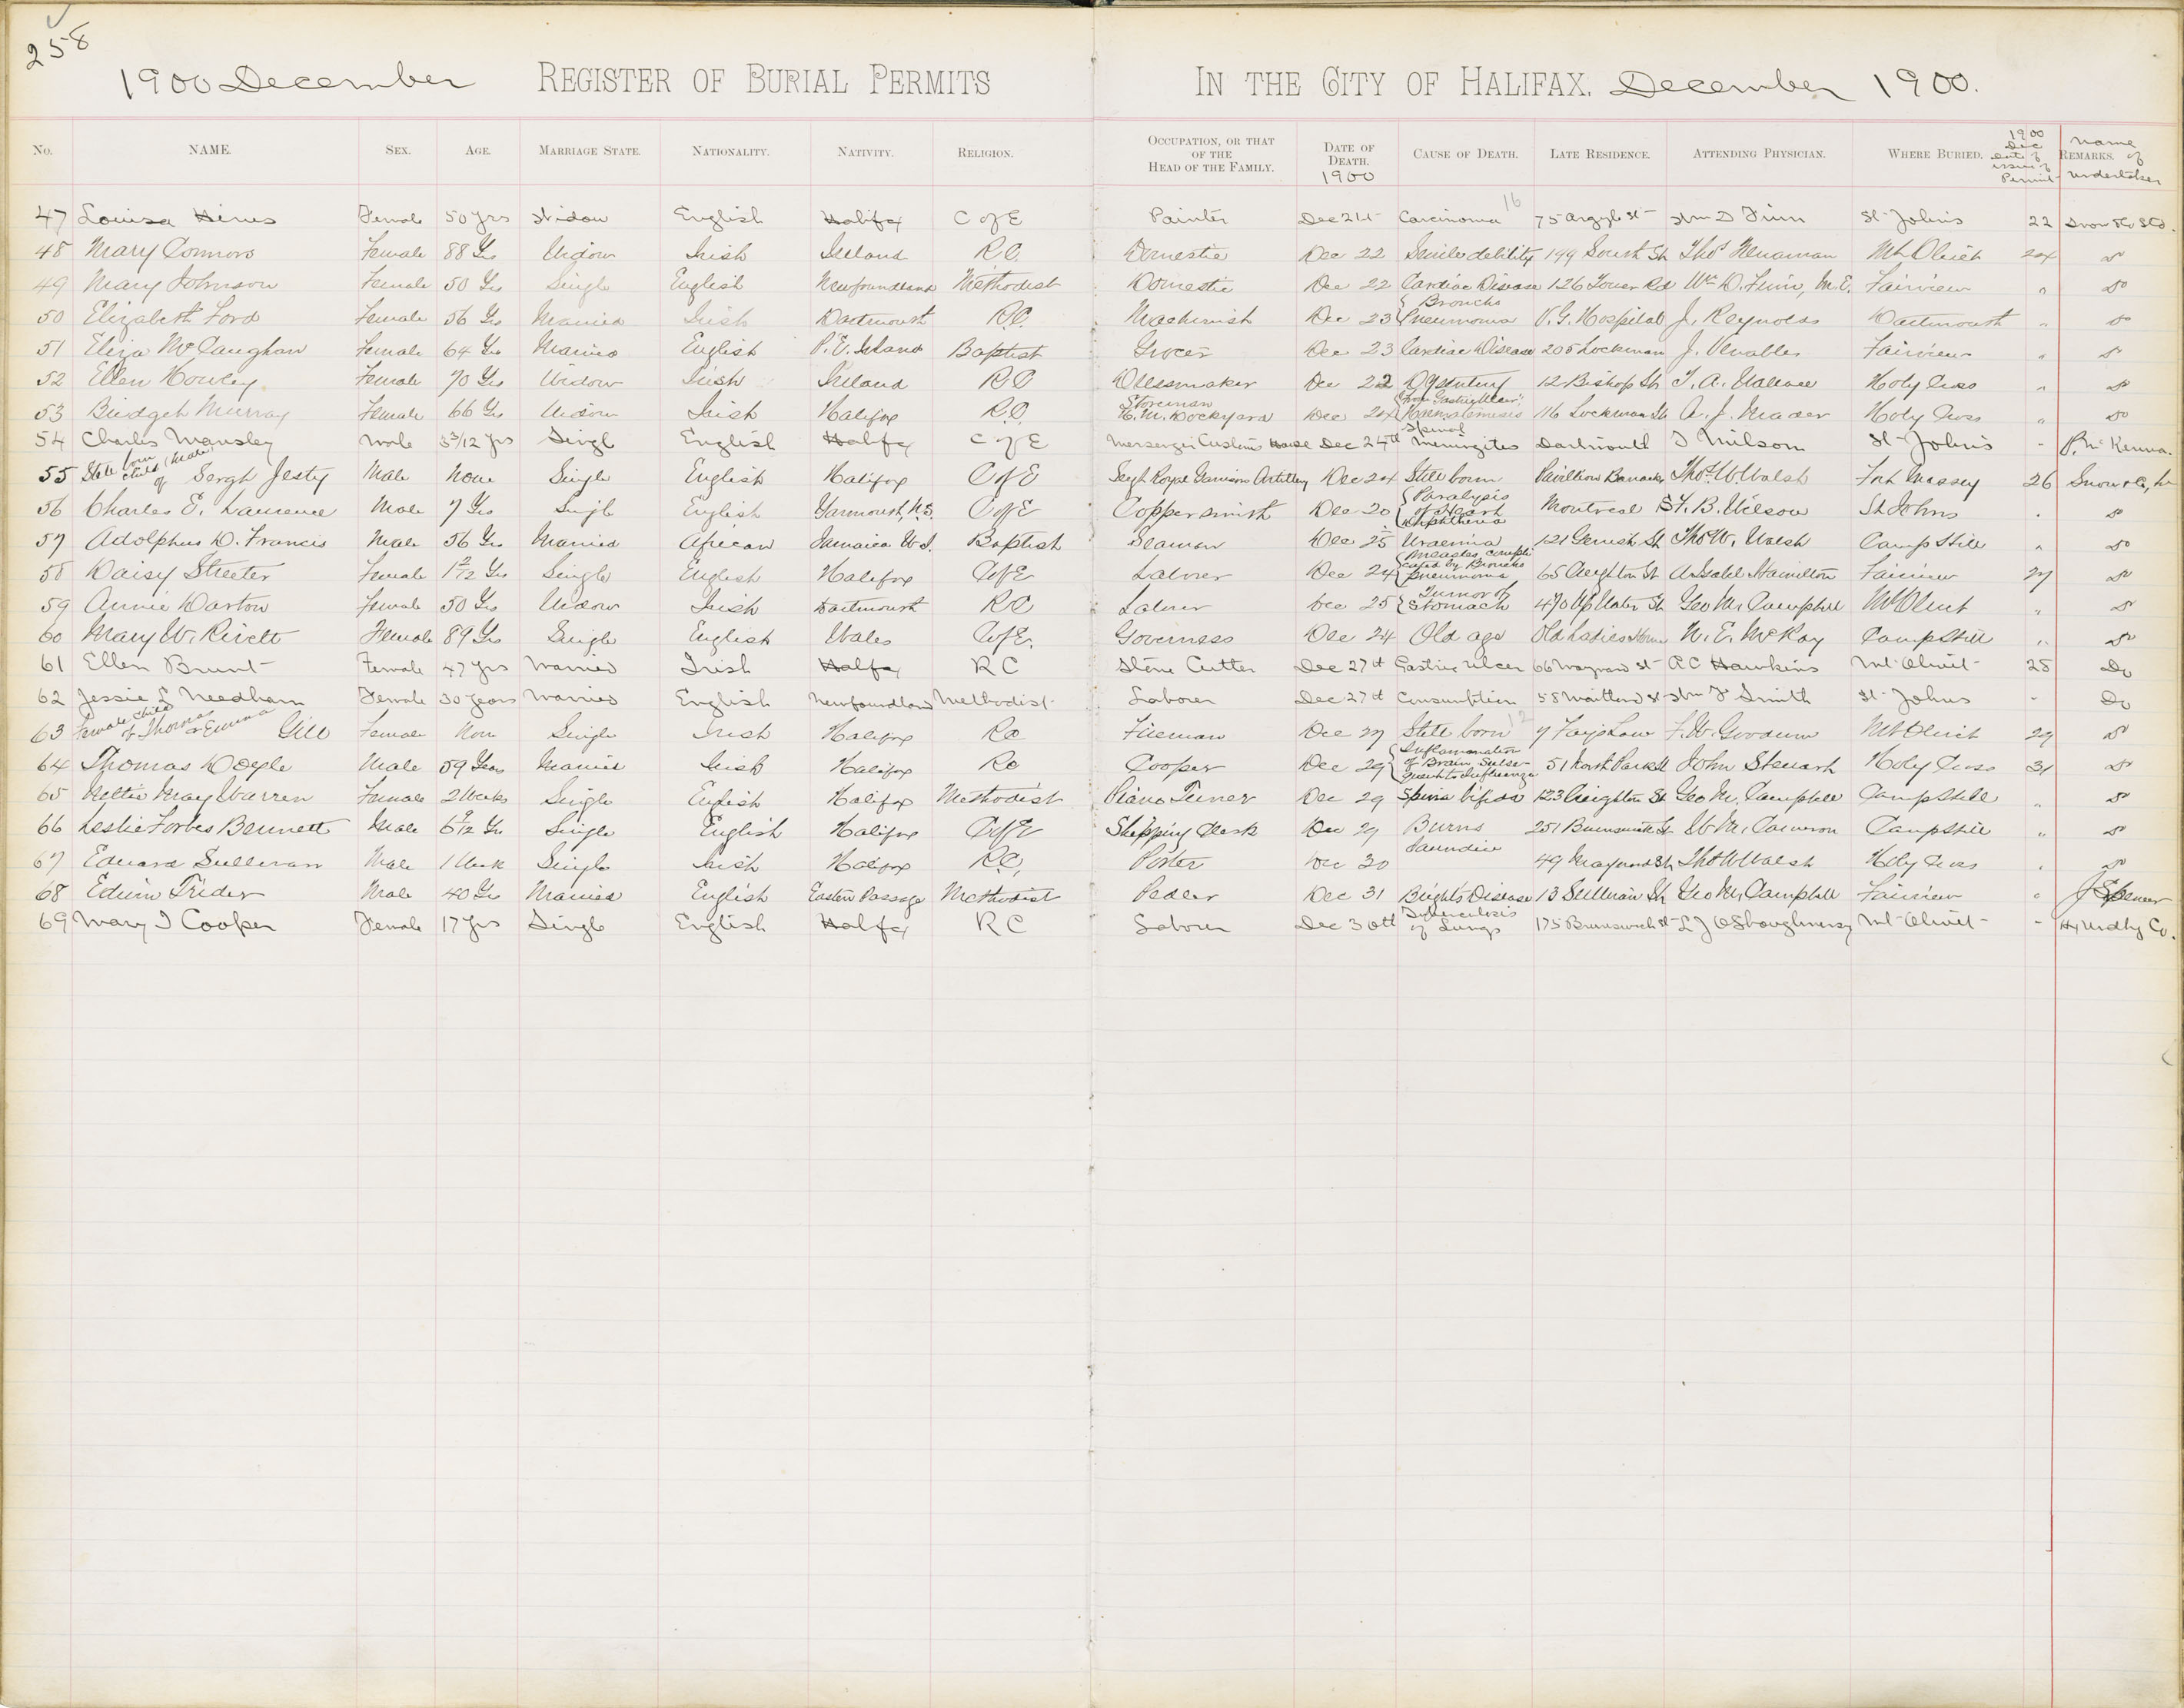 258
1900 December REGISTER OF BURIAL PERMITS IN THE CITY OF HALIFAX. December 1900.
No. NAME. SEX. AGE. MARRIAGE STATE. NATIONALITY. NATIVITY. RELIGION. OCCUPATION, OR THAT OF THE HEAD OF THE FAMILY. DATE OF DEATH. 1900 CAUSE OF DEATH. LATE RESIDENCE. ATTENDING PHYSICIAN. WHERE BURIED. 1900 Dec Date of issue of Permit REMARKS. Name of Undertaker
16
47 Louisa Hines Female 50 yrs Widow English Halifax C of E Painter Dec 21st Carcinoma 75 Argyle St Wm D Finn St Johns 22 Snow & Co Ltd.
48 Mary Connors Female 88 Yrs Widow Irish Ireland R.C. Domestic Dec 22 Senile debility 199 South St Thos Mt Olivet 24 do
49 Mary Johnson Female 50 Yrs Single English Newfoundland Methodist Domestic Dec 22 Cardiac Disease 126 Tower Rd Wm D. Finn, M.E. Fairview " do
50 Elizabeth Ford Female 56 Yrs Married Irish Dartmouth R.C. Machinist Dec 23 { Broncho Pneumonia V.G. Hospital J. Reynolds Dartmouth " do
51 Eliza McCaughan Female 64 Yrs Married English P.E. Island Baptist Grocer Dec 23 Cardiac Disease 205 Lockman J. Fairview " do
52 Ellen Howley Female 70 Yrs Widow Irish Ireland R.C Dressmaker Dec 22 Dysentery 12 Bishop St T. A. Wallace Holy Cross " do
53 Bridget Murray Female 66 Yrs Widow Irish Halifax R.C. Storeman H.M. Dockyard Dec 24 { from Gastric Ulcer Haematemesis 116 Lockman St A. J. Mader Holy Cross " do
54 Charles Mansley Male 3 3/12 yrs Singl English Halifax C of E Messenger Customs House Dec 24th Spinal Meningites Dartmouth T Milson St Johns - P. McKenna.
55 Still born child (Male) of Sergt Jesty Male None Single English Halifax C of E Sergt Royal Garrison Artillery Dec 24 Still born Pavillion Barracks Thos. W. Walsh Fort Massey 26 Snow & Co,
56 Charles E. Laurence Male 7 Yrs Singl English Yarmouth, N.S. C of E Coppersmith Dec 20 { Paralysis of Heart Diphtheria Montreal St F. B. Wilson St Johns . do
57 Adolphus D. Francis Male 56 Yrs Married African Jamaica W.I. Baptist Seaman Dec 25 Uraemia 121 Gerrish St Thos W. Walsh Camp Hill " do
58 Daisy Streeter Female 1 2/12 Yrs Single English Halifax C of E Laborer Dec 24 { Measles, complicated by Broncho pneumonia 65 Creighton St A. Isabel Hamilton Fairview 27 do
59 Annie Darton Female 50 Yrs Widow Irish Dartmouth R.C Laborer Dec 25 { Tumor of Stomach 470 Up Water St Geo M. Campbell Mt Olivet " do
60 Mary W. Rivett Female 89 Yrs Single English Wales C of E. Governess Dec 24 Old age Old Ladies Home N. E. McKay Camp Hill " do
61 Ellen Brunt Female 47 yrs Married Irish Halifax R C Stone Cutter Dec 27th Gastric Ulcer 66 Maynard St A C Hawkins Mt Olivet 28 Do
62 Jessie L Needham Female 30 years Married English Newfoundland Methodist Laborer Dec 27th Consumption 58 Maitland St Wm F Smith St Johns - Do
12
63 Female child of Thomas & Emma Gill Female None Single Irish Halifax R C Fireman Dec 27 Still born 7 F. W. Goodwin Mt Olivet 29 do
64 Thomas Doyle Male 59 Years Married Irish Halifax R C Cooper Dec 29 { Inflammation of Brain, Subsequent to Influenza 51 North Park St John Stewart Holy Cross 31 do
65 Nettie May Warren Female 2 Weeks Single English Halifax Methodist Piano Tuner Dec 29 Spina bifida 123 Creighton St Geo M. Campbell Camp Hill " do
66 Leslie Forbes Bennett Male 6 9/12 Yrs Single English Halifax C of E Shipping Clerk Dec 29 Burns 251 Brunswick St W. M. Cameron Camp Hill " do
67 Edward Sullivan Male 1 Week Single Irish Halifax R.C. Porter Dec 30 Jaundice 49 Maynard St Thos W Walsh Holy Cross . do
68 Edwin Trider Male 40 Yrs Married English Eastern Passage Methodist Pedler Dec 31 Bright's Disease 13 Sullivan St Geo M. Campbell Fairview " J Spencer
69 Mary I Cooper Female 17 yrs Single English Halifax R C Laborer Dec 30th Tuberculosis of Lungs 175 Brunswick St L J OShoughnessy Mt Olivet - Hx Undtg Co.